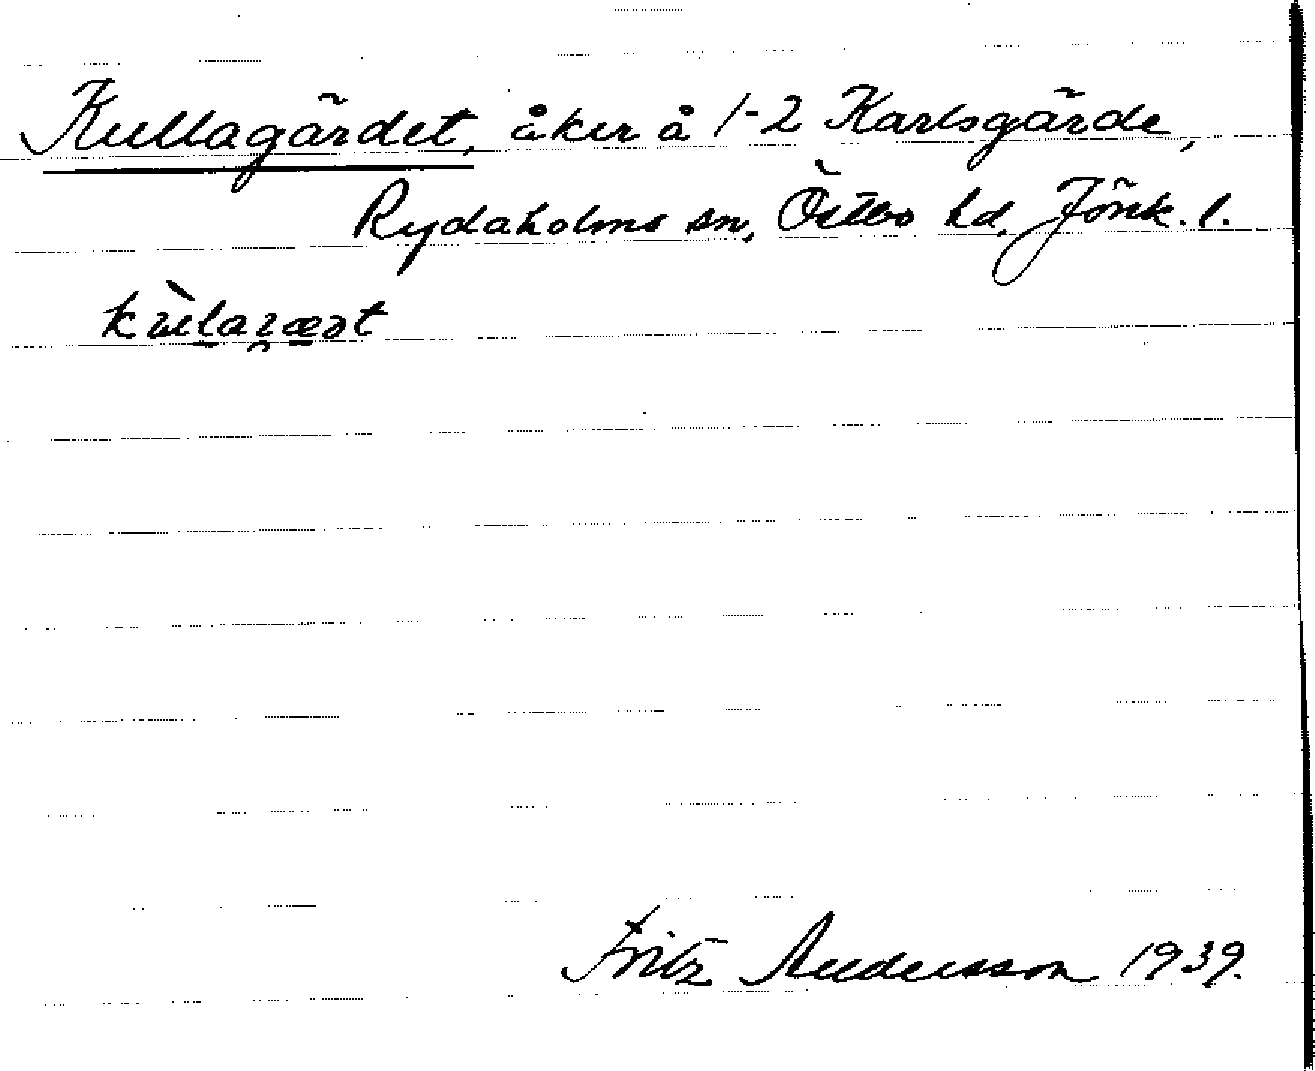 Kullagärdet, åker å 1-2 Karlsgärde,
Rydaholms sn, Östbo hd, Jönk. l.
Fritz Andersson 1939.